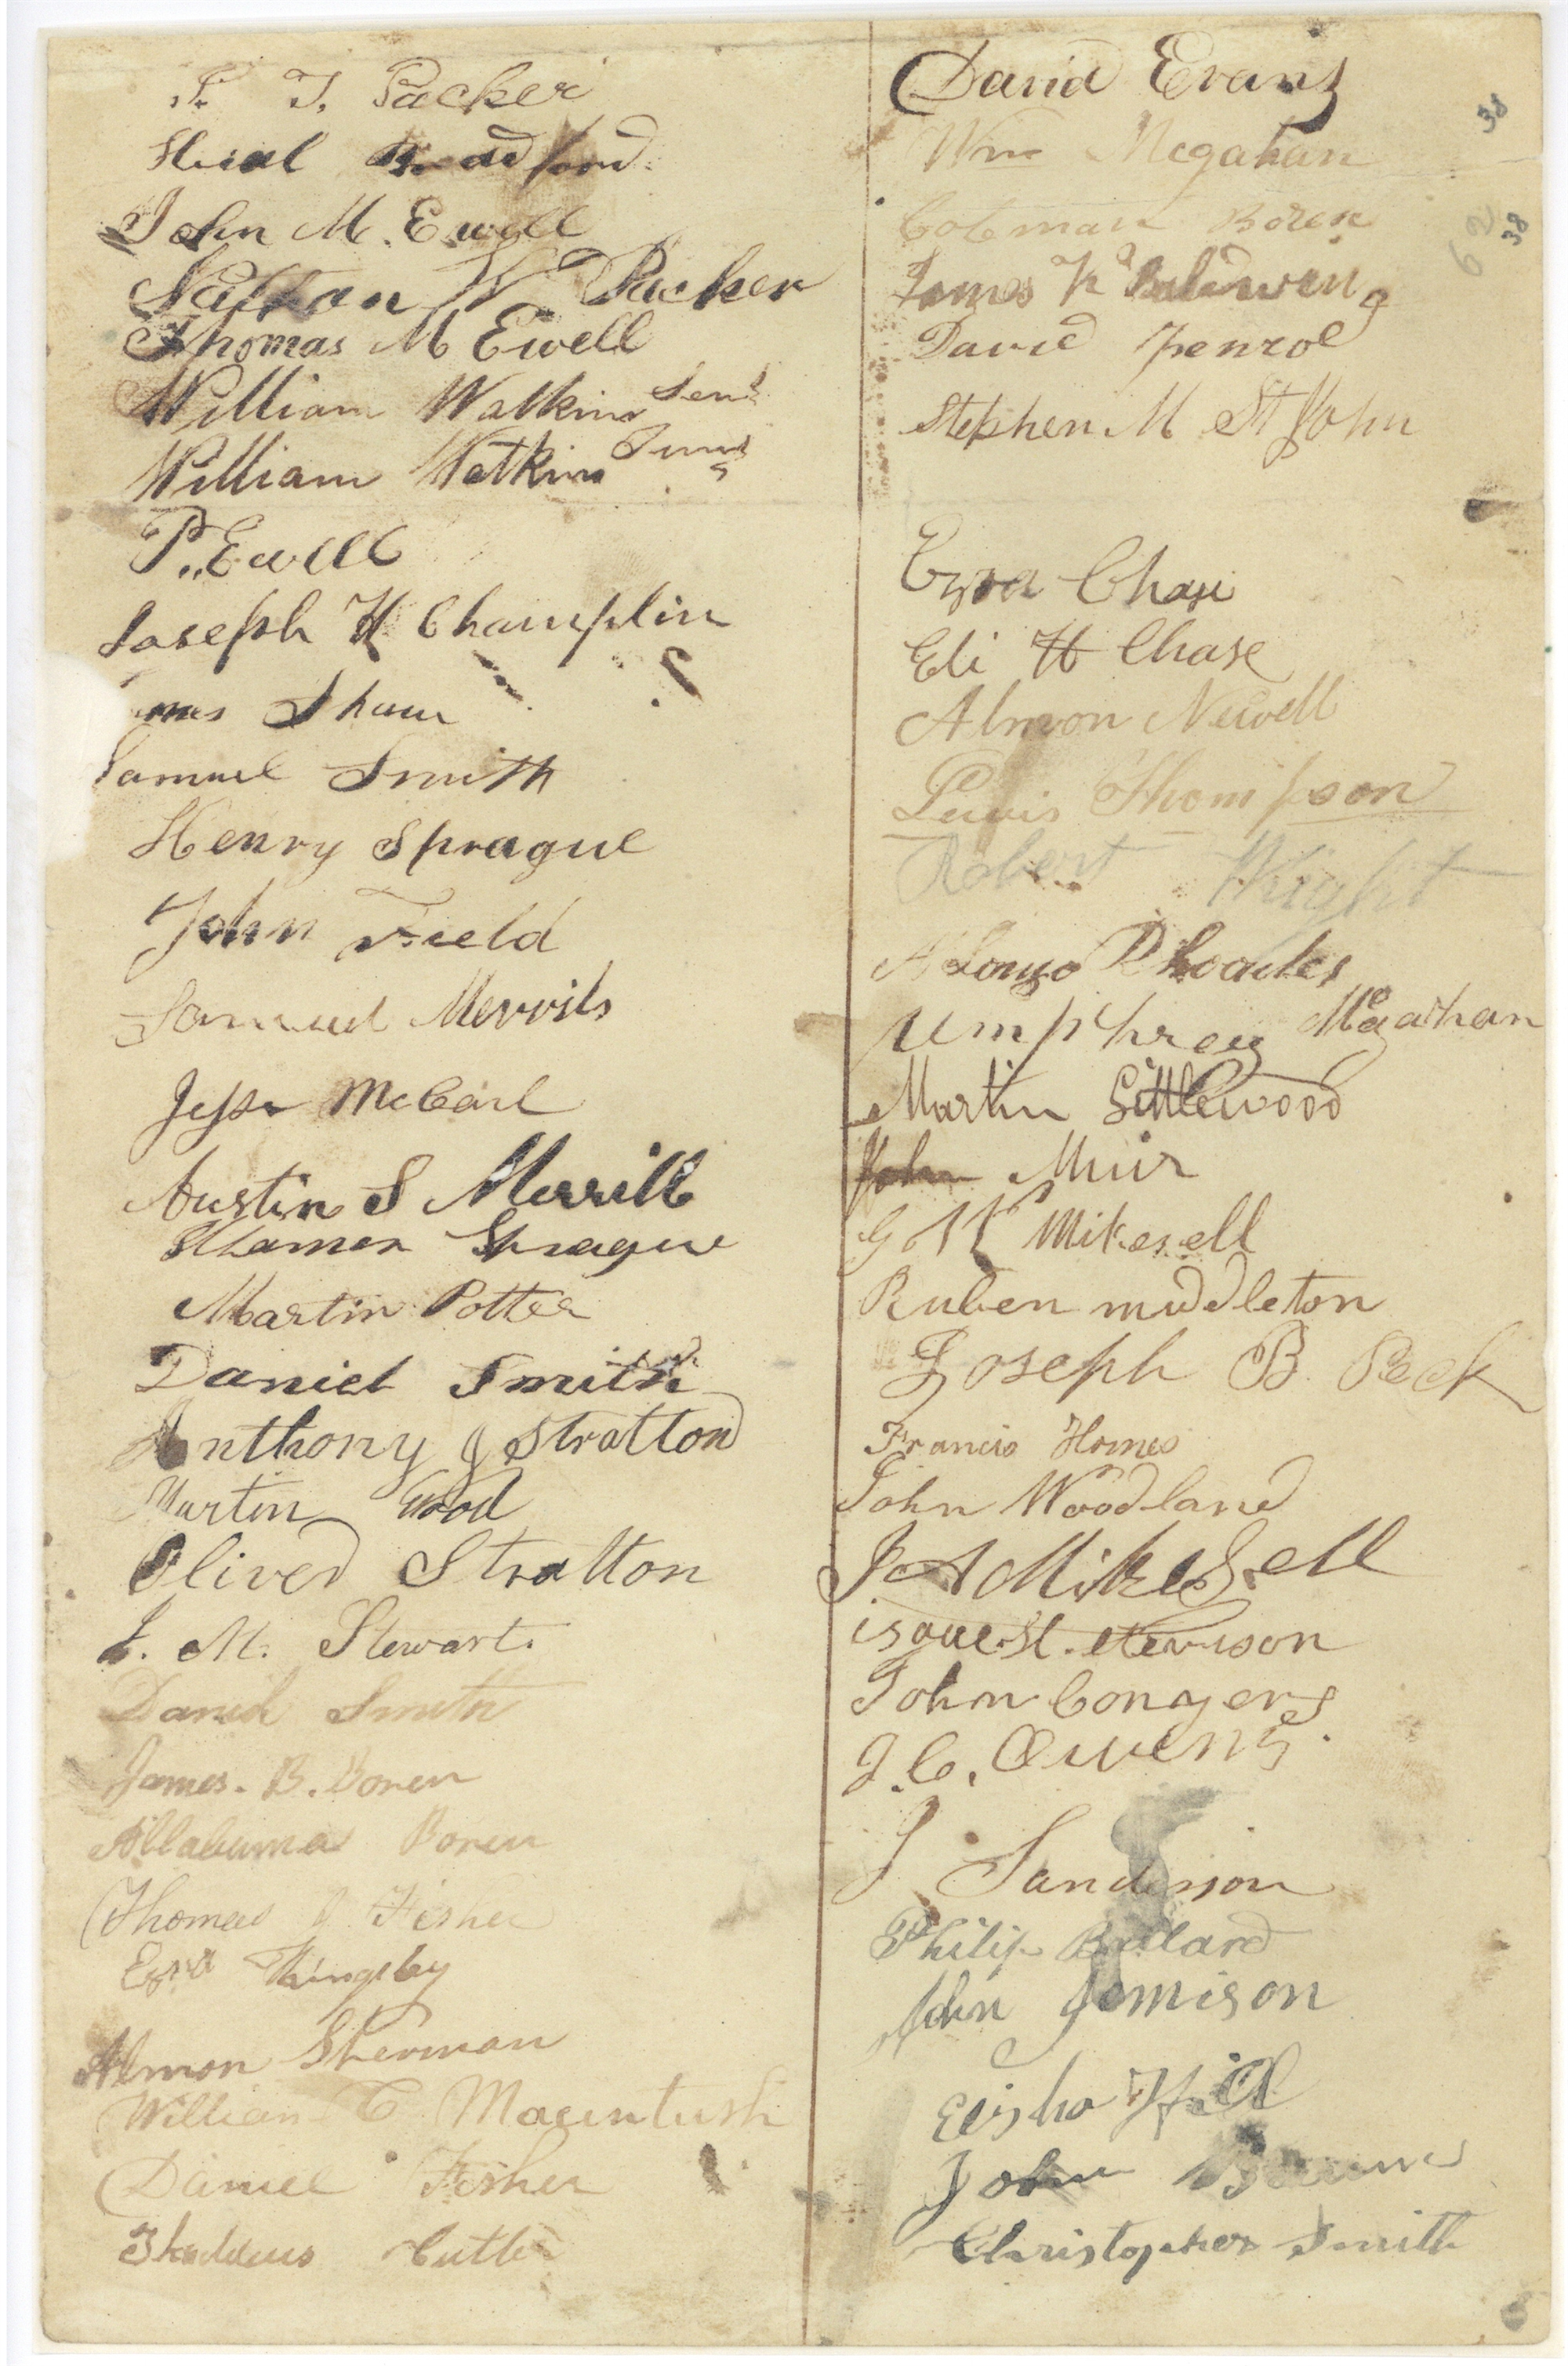 P. T. Packer
Hial Bradford
John M. Ewell
Nathan W Packer
Thomas M Ewell
William Watkins Senr
William Watkins Junr
P. Ewell
Joseph H Champlin
mes Sham
Samuel Smith
Henry Sprague
John Field
Samuel Merrils
Jesse McCarl
Austin S Merrill
Sprague
Martin Potter
Daniel Smith
Anthony J Stratton
Martin Wood
Oliver Stratton
J. M. Stewart.
David Smith
James. B. Boren
Allabuma Boren
Thomas J Fisher
Ezra Kingsby
Almon Sherman
William C Macintush
Daniel Fisher
Thaddeus Cutler
David Evans
Wm Mcgahan
Coleman Boren
James K Baldwen
David Penrol
Stephen M St John
Ezra Chase
Eli H Chase
Almon Newell
Lewis Thompson
Robert Wright
Alonzo Rhoades
Umphrey Mcgathan
Martin Littlewood
John Muir
G W Mikesell
Ruben middleton
Joseph B. Peck
Francis Homes
John Woodland
J A Mikesell
John Conyers
J. C. Owens.
J Sanderson
Philip Ballard
John Jomison
Elisha Hill
John
Christopher Smith
38
62
38